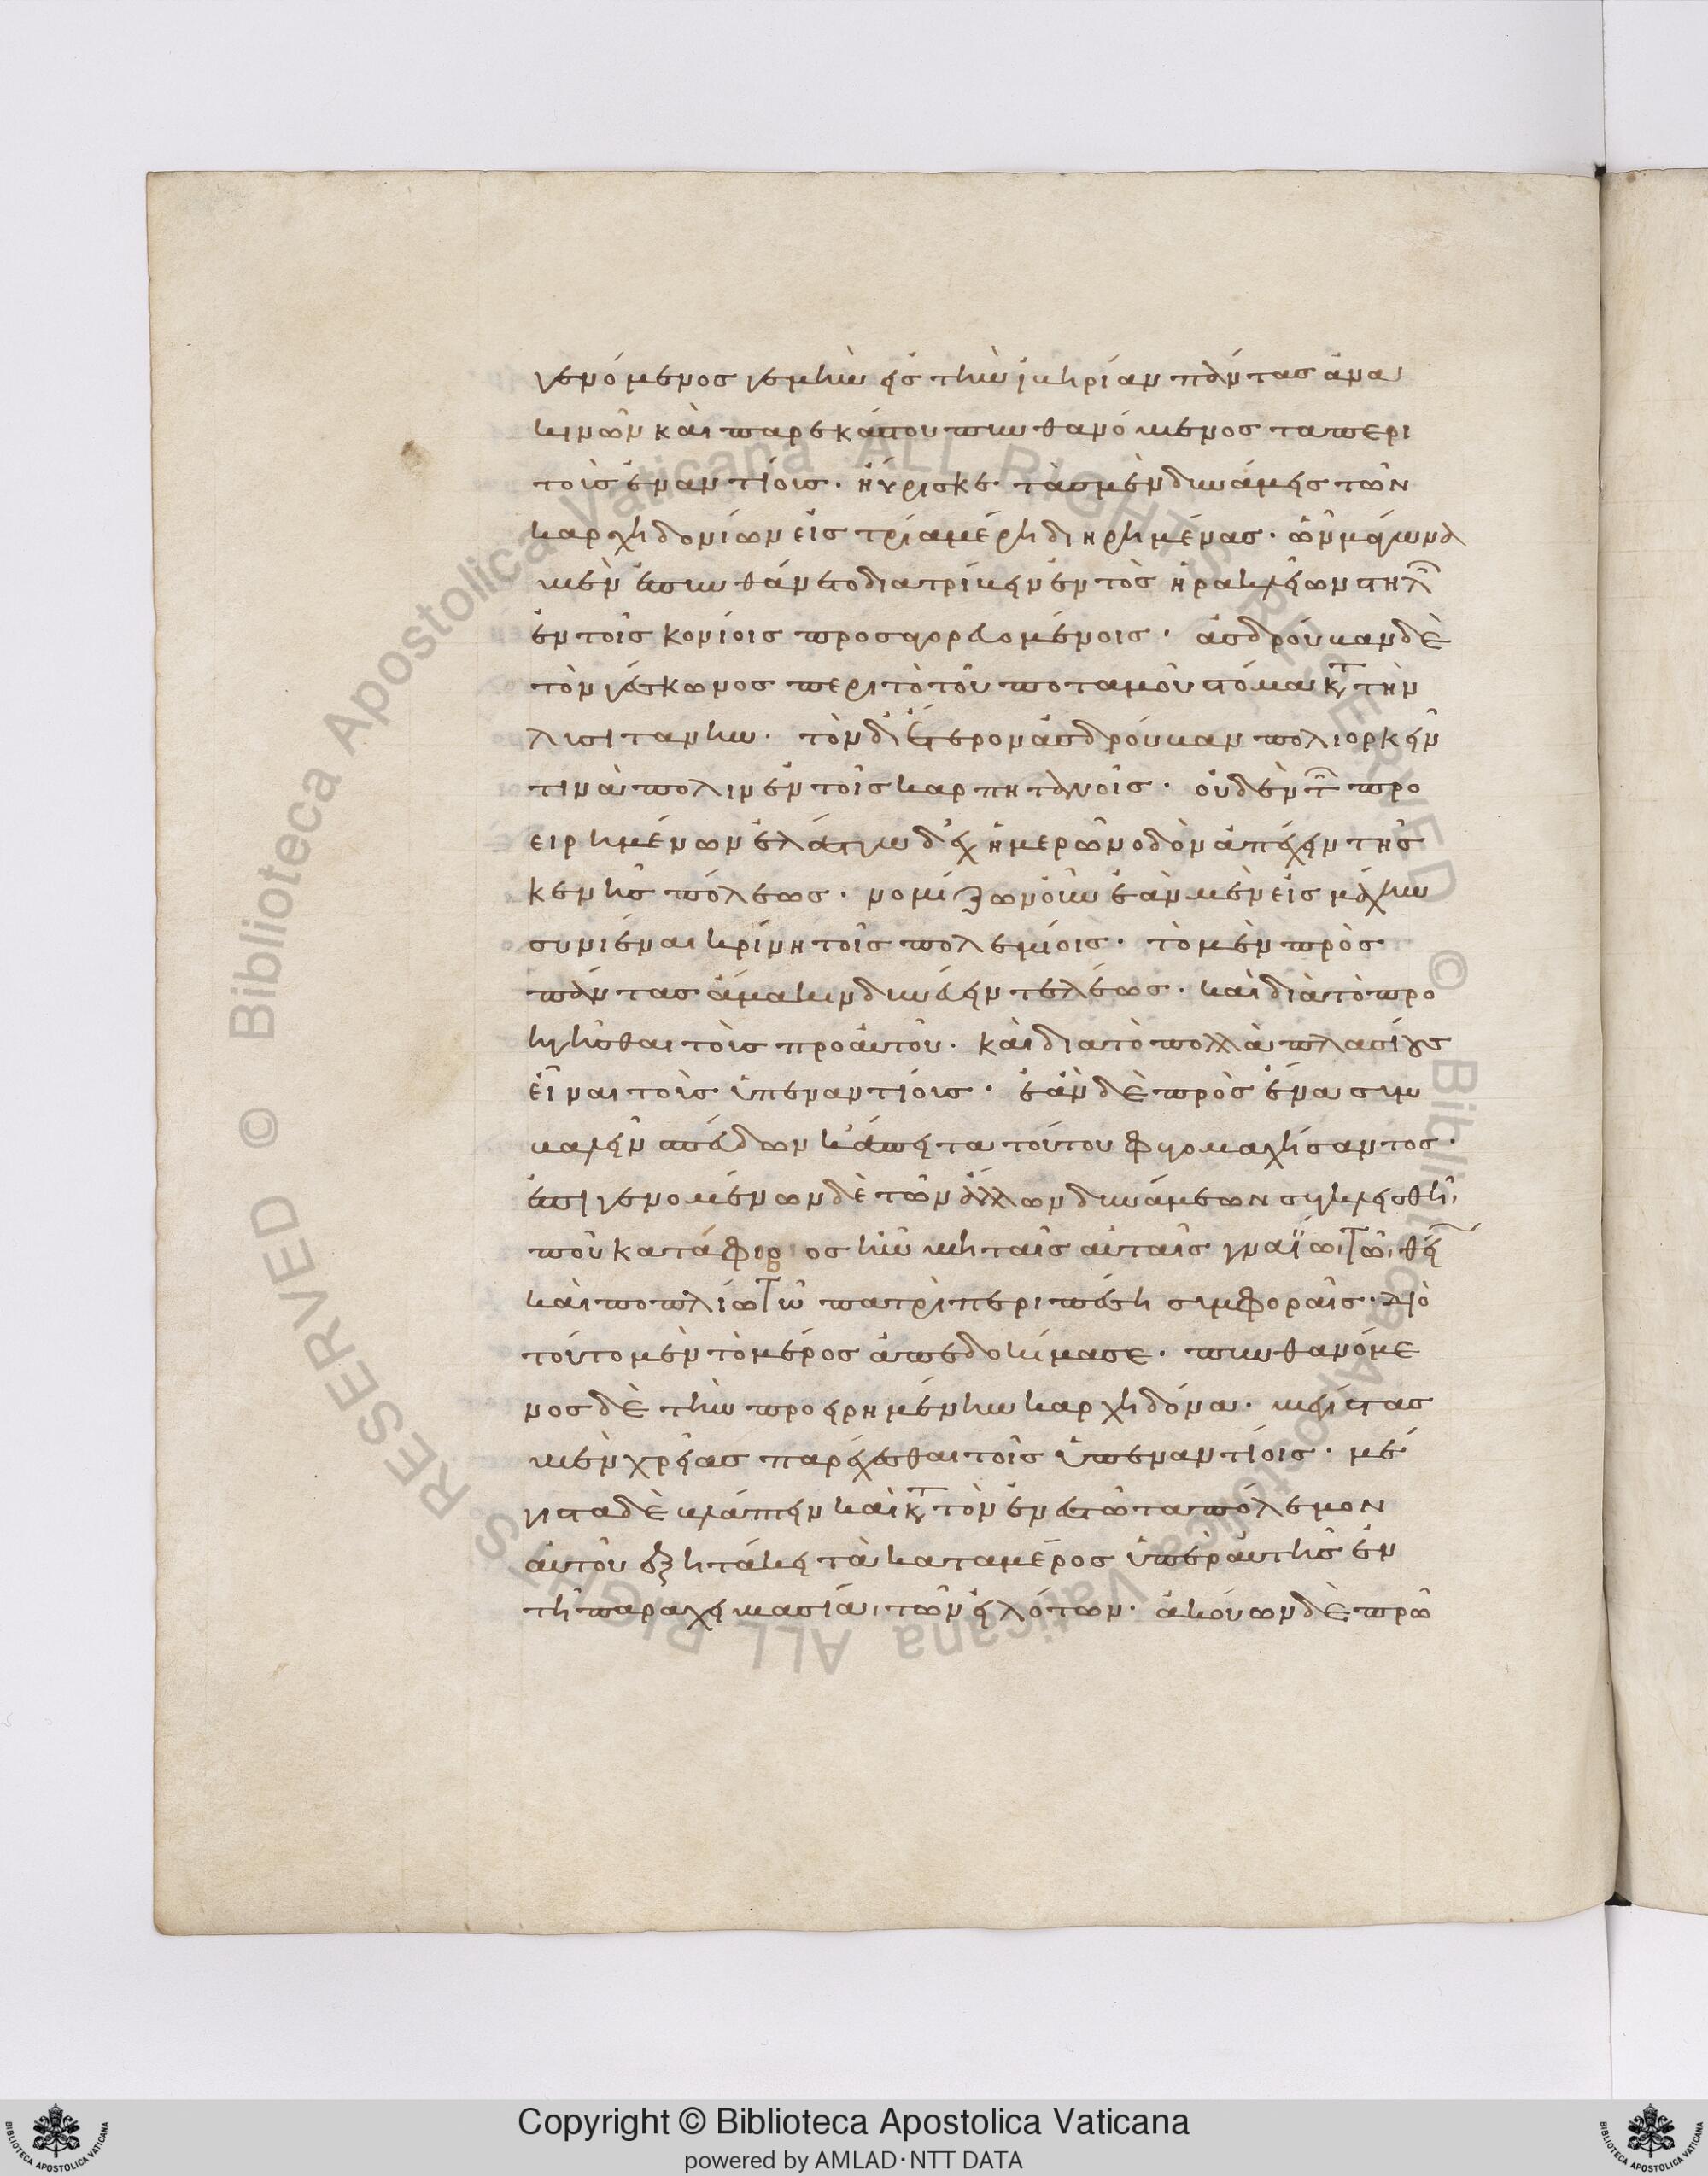 γενόμενος γεμὴν εἰς τὴν ἰβηρίαν πάντας ἀνα
κινῶν καὶ παρεκάστου πυνθανόμενος τα περι
τοὺς ἐναντίους. ηὕρισκε τὰς μὲν δυνάμεις τῶν
καρχηδονίων εἰς τρία μέρη διηρημένας. ὧν μάγωνα
μὲν ἐπυνθάνετο διατρίβειν ἐντὸς ἡρακλείων στηλῶν
ἐν τοῖς κονίοις προσαγορευομένοις. ἀσδρούβαν δὲ
τὸν γέσκωνος περὶ τὸ τοῦ ποταμοῦ στόμα κατὰ τὴν
λυσιτανὴν. τὸν δ' ἕτερον ἀσδρούβαν πολιορκεῖν
τινὰ πολιν ἐν τοῖς καρπητανοῖς. οὐδὲν τῶν προ
ειρημένων ἐλάττω δέχ' ἡμερῶν ὁδὸν ἀπέχειν τῆς
κενῆς πόλεως. νομίζων οὖν ἐὰν μὲν εἰς μάχην
συνιέναι κρίνη τοῖς πολεμίοις. τὸ μὲν πρὸς
πάντας ἅμα κινδυνεύειν τελέως. καὶ διὰ τὸ προ
ηγῆσθαι τοὺς προ αὐτοῦ. καὶ δια τὸ πολλὰ πλασίους
εἶναι τοὺς ὑπεναντίους. ἐὰν δὲ πρὸς ἕνα συμ
βαλεῖν σπεύδων κάπειτα τούτου φυγομαχήσαντος.
ἐπιγενομένων δὲ τῶν ἄλλων δυνάμεων συγκλεισθῆι
που κατάφοβος ἦν μὴ ταῖς αὐταῖς γναΐωι τῶι θείωι
καὶ ποπλίω τῶ πατρὶ περιπέση συμφοραῖς. διὸ
τοῦτο μὲν τὸ μέρος ἀπεδοκίμασε. πυνθανόμε
νος δὲ τὴν προειρημένην καρχηδόνα. μεγίστας
μὲν χρείας παρέχεσθαι τοῖς ὑπεναντίοις. μέ
γιστα δὲ βλάπτειν καὶ κατὰ τὸν ἐνεστῶτα πόλεμον
αὐτοῦ ἐξητάκει τὰ κατα μέρος ὑπὲρ αὐτῆς ἐν
τῆ παραχειμασίαι τῶν εἰδότων. ἀκούων δὲ πρῶ
Copyright © Biblioteca Apostolica Vaticana
powered by AMLAD·NTT DATA